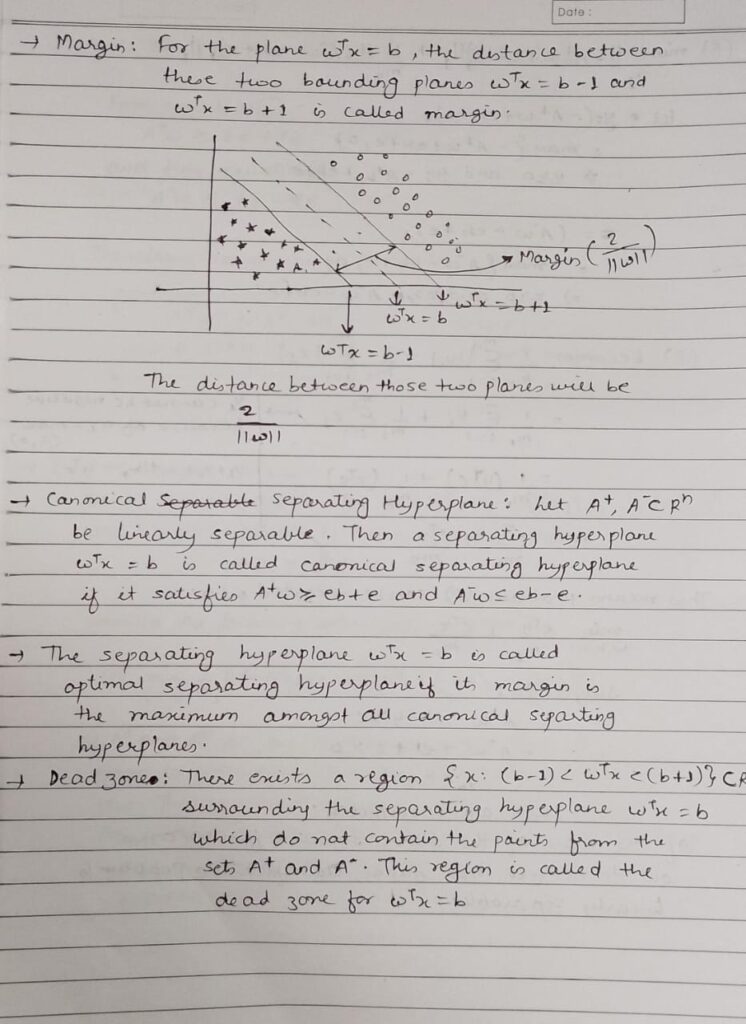 Date :
→ Margin: For the plane wᵀx = b, the distance between
these two bounding planes wᵀx = b-1 and
wᵀx = b+1 is called margin.
Margin (2/||w||)
wᵀx = b+1
wᵀx = b
wᵀx = b-1
The distance between those two planes will be
2
||w||
→ Canonical Separable Separating Hyperplane: Let A⁺, A⁻ ⊂ Rⁿ
be linearly separable. Then a separating hyperplane
wᵀx = b is called canonical separating hyperplane
if it satisfies A⁺w ≥ eb+e and A⁻w ≤ eb-e.
→ The separating hyperplane wᵀx = b is called
optimal separating hyperplane if its margin is
the maximum amongst all canonical separting
hyperplanes.
→ Dead zone: There exists a region {x: (b-1) < wᵀx < (b+1)} ⊂ R
surrounding the separating hyperplane wᵀx = b
which do not contain the points from the
sets A⁺ and A⁻. This region is called the
dead zone for wᵀx = b